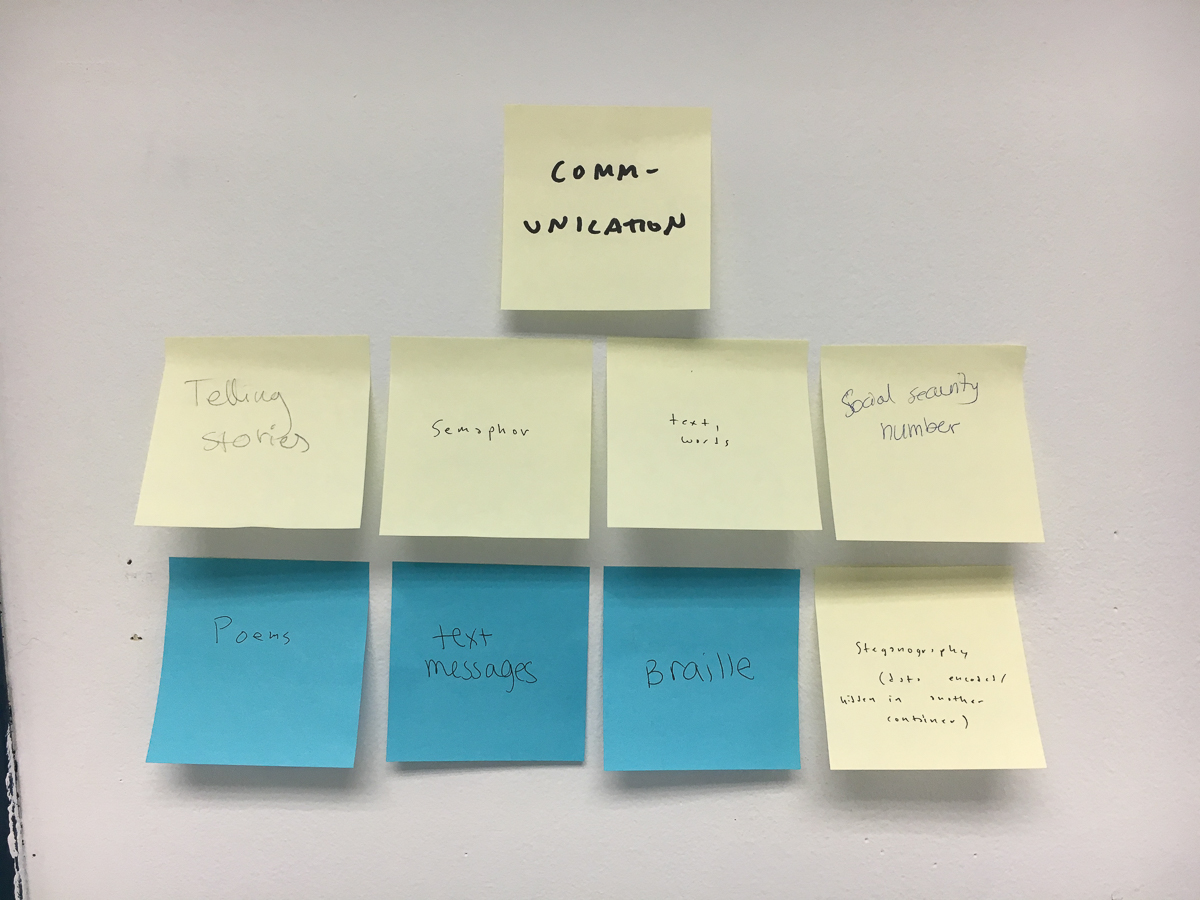 COMM-
UNICATION
Telling
stories
Semaphor
text,
words
Social security
number
Poems
text
messages
Braille
Steganography
(data encoded/
hidden in another
container)